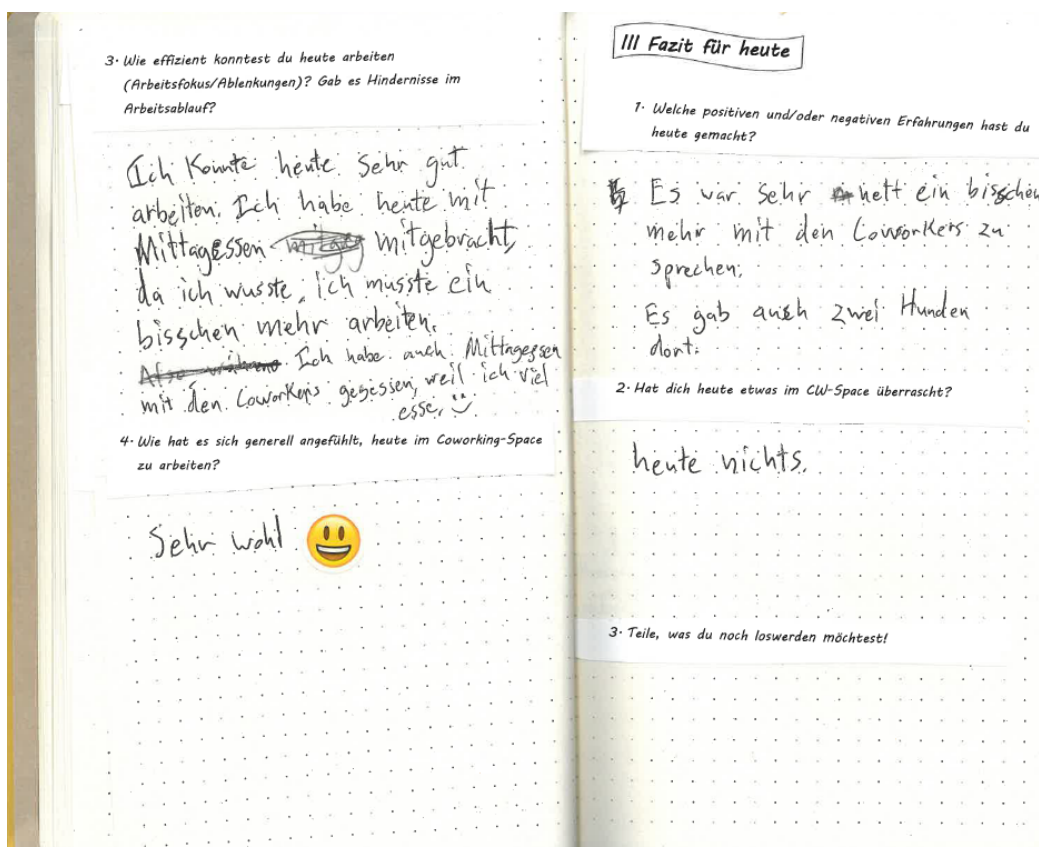 3. Wie effizient konntest du heute arbeiten
(Arbeitsfokus/Ablenkungen)? Gab es Hindernisse im
Arbeitsablauf?
Ich konnte heute sehr gut
arbeiten. Ich habe heute mit
Mittagessen mitgebracht,
da ich wusste, ich musste ein
bisschen mehr arbeiten.
Ich habe auch Mittagessen
mit den Coworkers gegessen, weil ich viel
esse.
4. Wie hat es sich generell angefühlt, heute im Coworking-Space
zu arbeiten?
Sehr wohl
III Fazit für heute
1. Welche positiven und/oder negativen Erfahrungen hast du
heute gemacht?
Es war sehr nett ein bisschen
mehr mit den Coworkers zu
sprechen.
Es gab auch zwei Hunden
dort.
2. Hat dich heute etwas im CW-Space überrascht?
heute nichts.
3. Teile, was du noch loswerden möchtest!